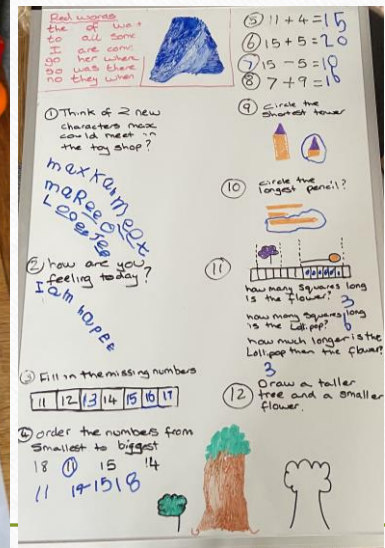 Red words
the of was
to all some
I are come
go her when
so was there
no they when
① Think of 2 new
characters max
could meet in
the toy shop?
max Kan meet
maReeO
② how are you
feeling today?
I am hapee
③ Fill in the missing numbers
11 12 13 14 15 16 17
④ order the numbers from
smallest to biggest
18 11 15 14
11 14 15 18
⑤ 11 + 4 = 15
⑥ 15 + 5 = 20
⑦ 15 - 5 = 10
⑧ 7 + 9 = 16
⑨ circle the
shortest tower
⑩ circle the
longest pencil?
⑪
how many squares long
is the flower? 3
how many squares long
is the Lollipop? 6
how much longer is the
Lollipop then the flower?
3
⑫ Draw a taller
tree and a smaller
flower.